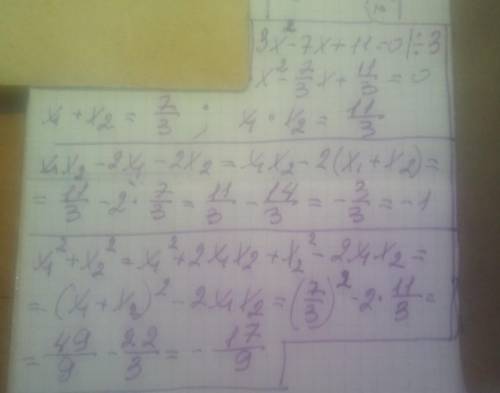 3x²-7x+11=0 |÷3
x²-7/3x+11/3=0
x₁+x₂=7/3; x₁·x₂=11/3
x₁x₂-2x₁-2x₂=x₁x₂-2(x₁+x₂)=
=11/3-2·7/3=11/3-14/3=-3/3=-1
x₁²+x₂²=x₁²+2x₁x₂+x₂²-2x₁x₂=
=(x₁+x₂)²-2x₁x₂=(7/3)²-2·11/3=
=49/9-22/3=-17/9